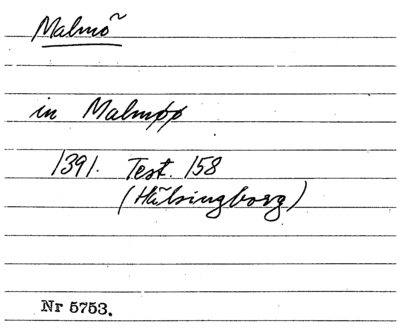 Malmö
in Malmøø
1391. Test. 158
(Hälsingborg)
Nr 5753.